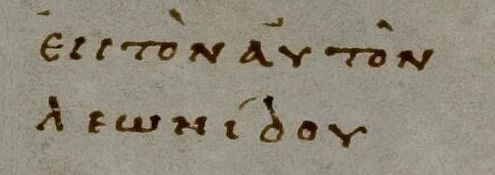 ἐις τὸν ἀυτὸν
λεωνίδου